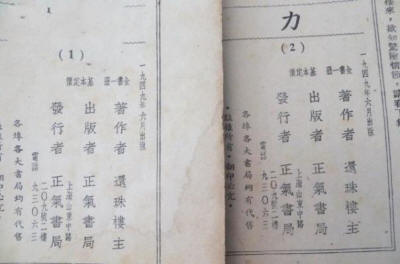 (1)
一九四九年六月出版
全書一張 基本定價
著作者 還珠樓主
出版者 正氣書局
發行者 正氣書局
上海山東中路
二〇九號二樓
電話 九三〇六三
各埠各大書局均有代售
力
(2)
一九四九年六月出版
全書一張 基本定價
著作者 還珠樓主
出版者 正氣書局
發行者 正氣書局
上海山東中路
二〇九號二樓
電話 九三〇六三
各埠各大書局均有代售